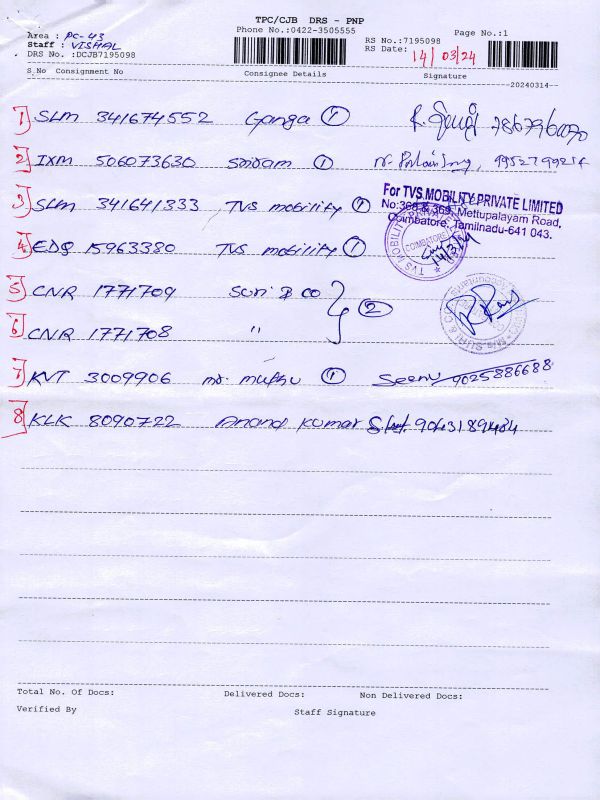 TPC/CJB DRS - PNP
Area : PC-43 Phone No.:0422-3505555 RS No.:7195098 Page No.:1
Staff : VISHAL RS Date: 14/03/24
DRS No. :DCJB7195098
S.No Consignment No Consignee Details Signature
20240314
1 SLM 341674552 Ganga 1
2 IXM 506073630 Sriram 1
3 SLM 341641333 TVS mobility 1
For TVS MOBILITY PRIVATE LIMITED
No:368 & 369, Mettupalayam Road,
Coimbatore, Tamilnadu-641 043.
4 EDQ 15963380 TVS mobility 1
TVS MOBILITY PRIVATE
COIMBATORE
14/3/24
5 CNR 1771709 Suri & co 2
6 CNR 1771708 "
7 KVT 3009906 mr. muthu 1 Seenu 9025886688
8 KLK 8090722 Anand Kumar 9043189484
Total No. Of Docs: Delivered Docs: Non Delivered Docs:
Verified By Staff Signature